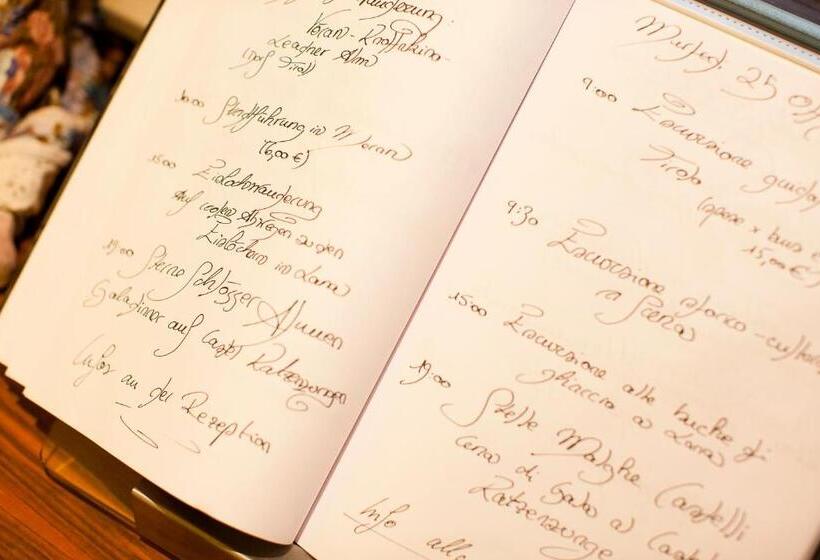 Vöran - Knottnkino -
Leadner Alm
(Dorf Tirol)
10:00 Stadtführung in Meran
(6,00 €)
15:00 Eislochwanderung
Auf Abwegen zu den
Eislöchern in Lana
19:00 Sterne Schlösser Almen
Galadinner auf Castel Katzenzungen
Infos an der Rezeption
25
9:00 Escursione
Tirolo
(spese x bus e
15,00 €)
9:30 Escursione storico-cultura
a Scena
15:00 Escursione alle buche di
ghiaccio a Lana
19:00 Stelle Malghe Castelli
cena di Gala a Castel
Katzenzunge
Info alla